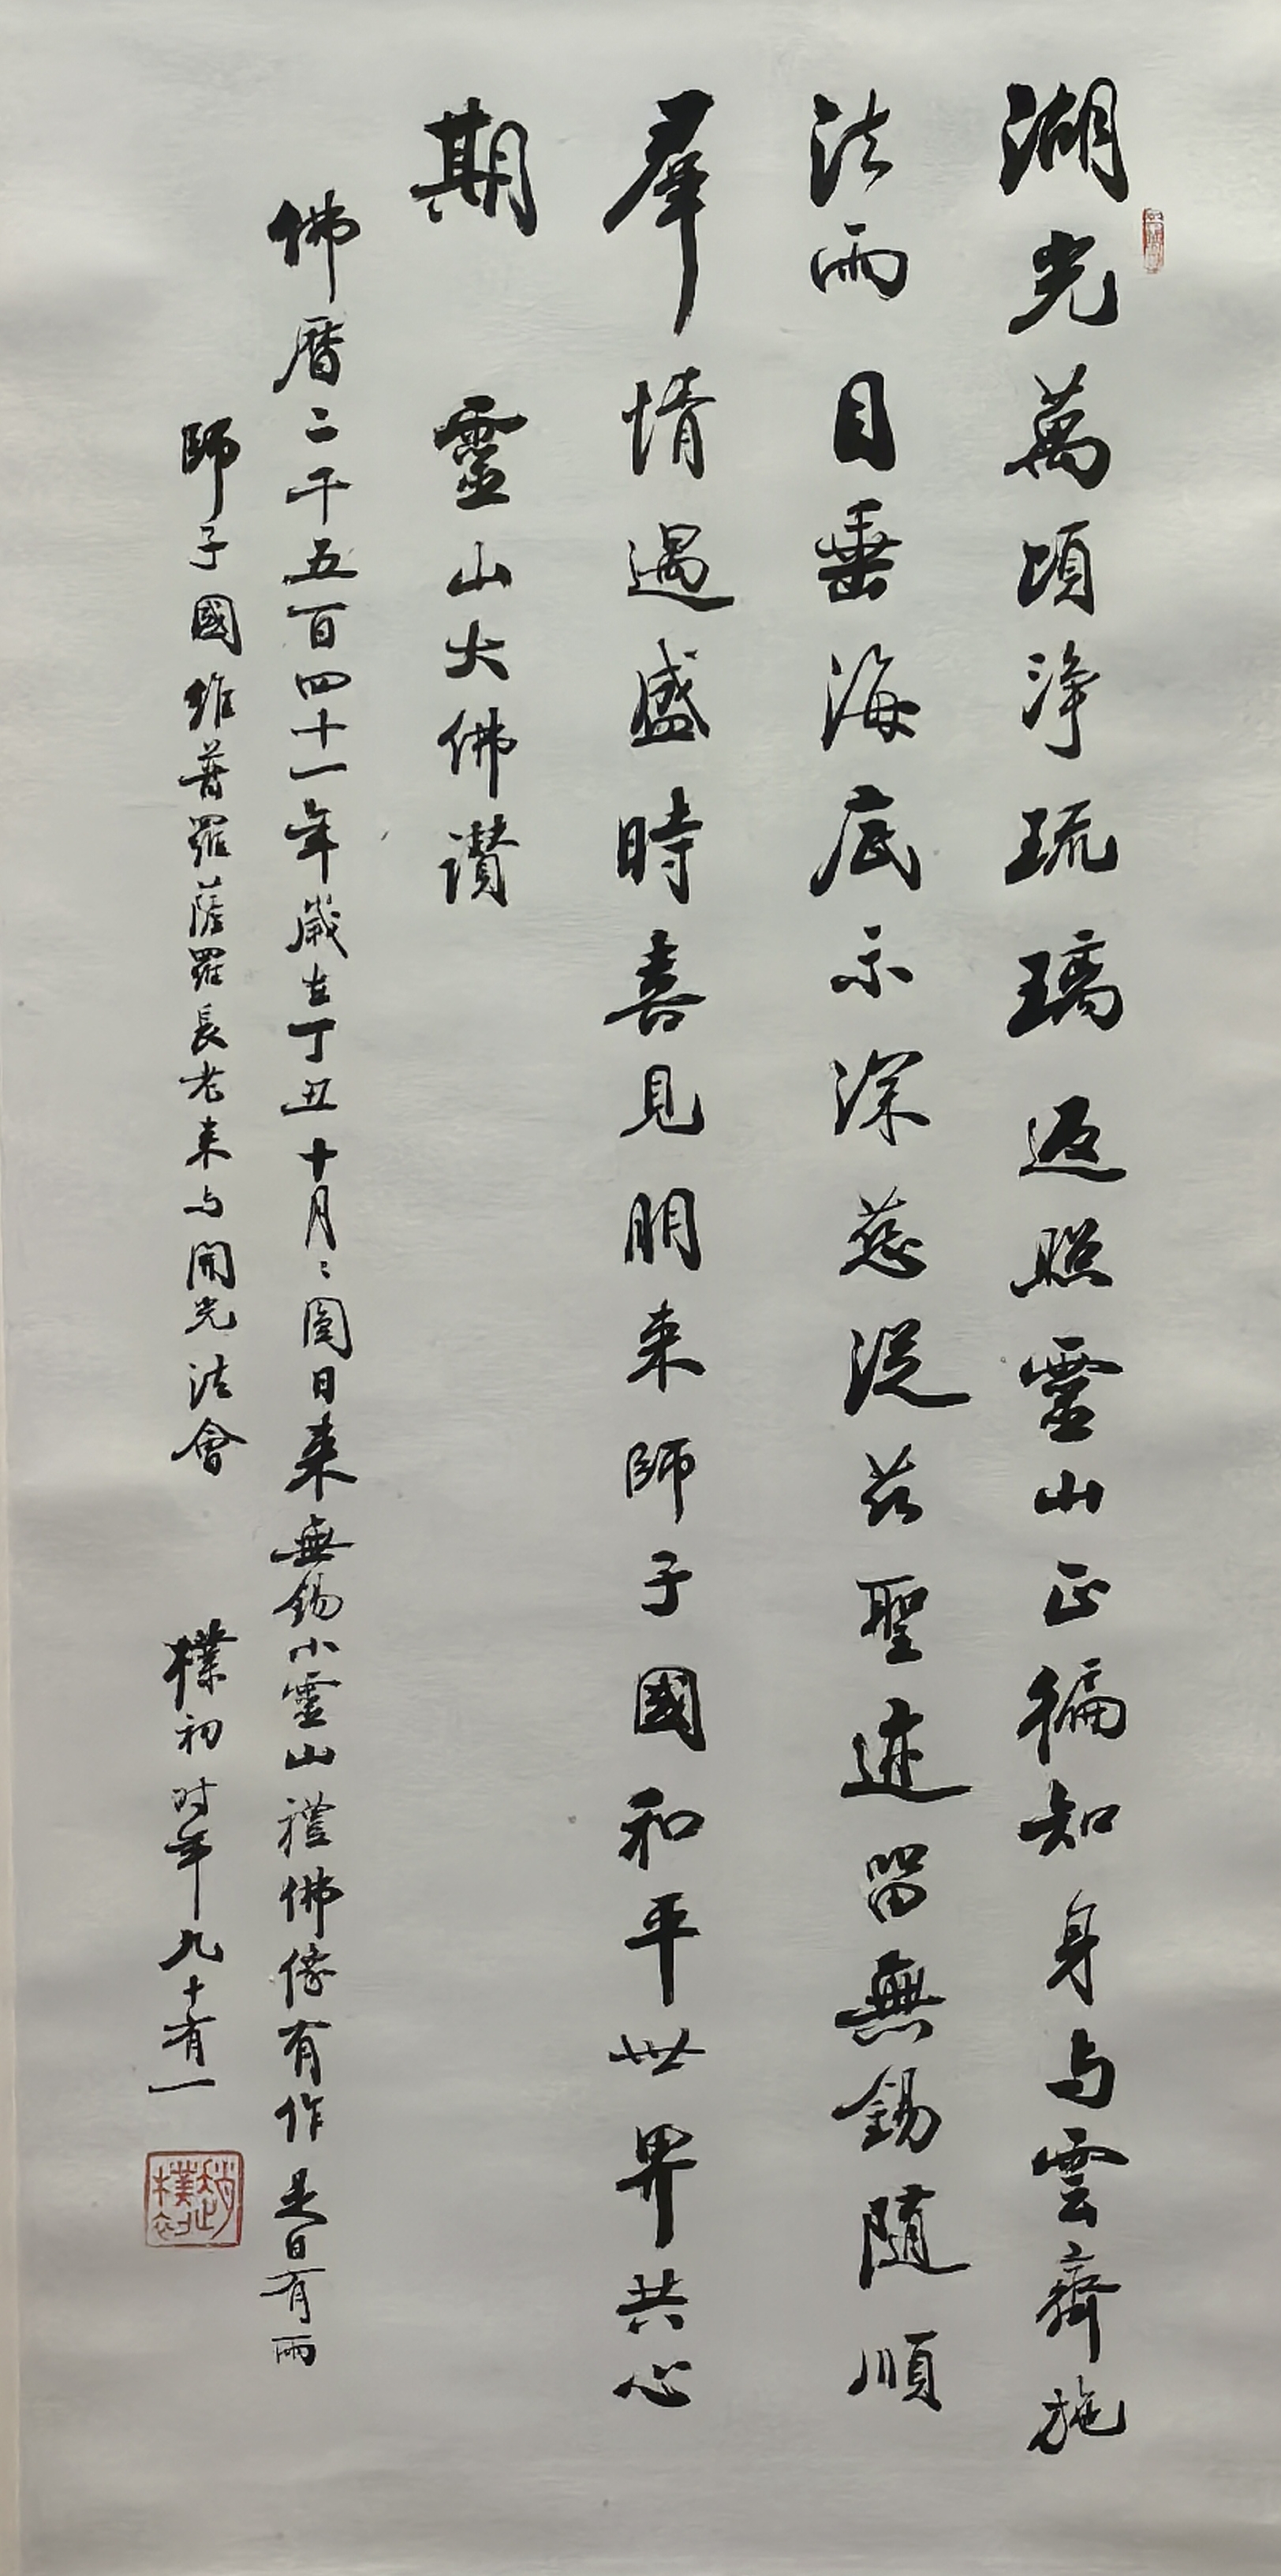 湖光萬頃淨琉璃返照靈山正徧知身与雲齊施
法雨目垂海底示深慈從茲聖迹留無錫隨順
羣情遇盛時喜見朋來師子國和平世界共心
期 靈山大佛讚
佛曆二千五百四十一年歲在丁丑十月〻圓日來無錫小靈山禮佛像有作是日有雨
師子國維普羅薩羅長老来与開光法會 樸初时年九十有一
趙樸初